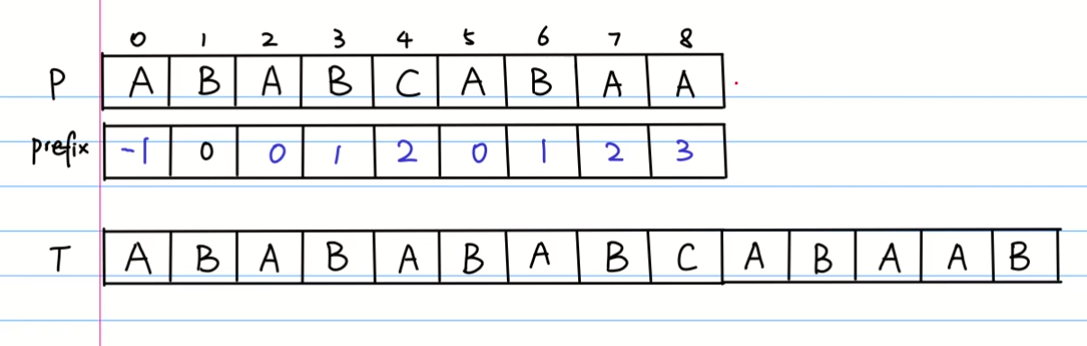 0 1 2 3 4 5 6 7 8
P A B A B C A B A A
prefix -1 0 0 1 2 0 1 2 3
T A B A B A B A B C A B A A B